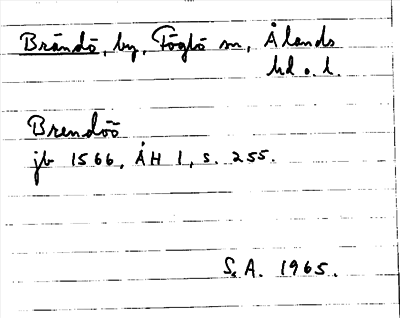 Brändö, by, Föglö sn, Ålands
hd o. l.
Brendöö
jb 1566, ÅH 1, s. 255.
S. A. 1965.